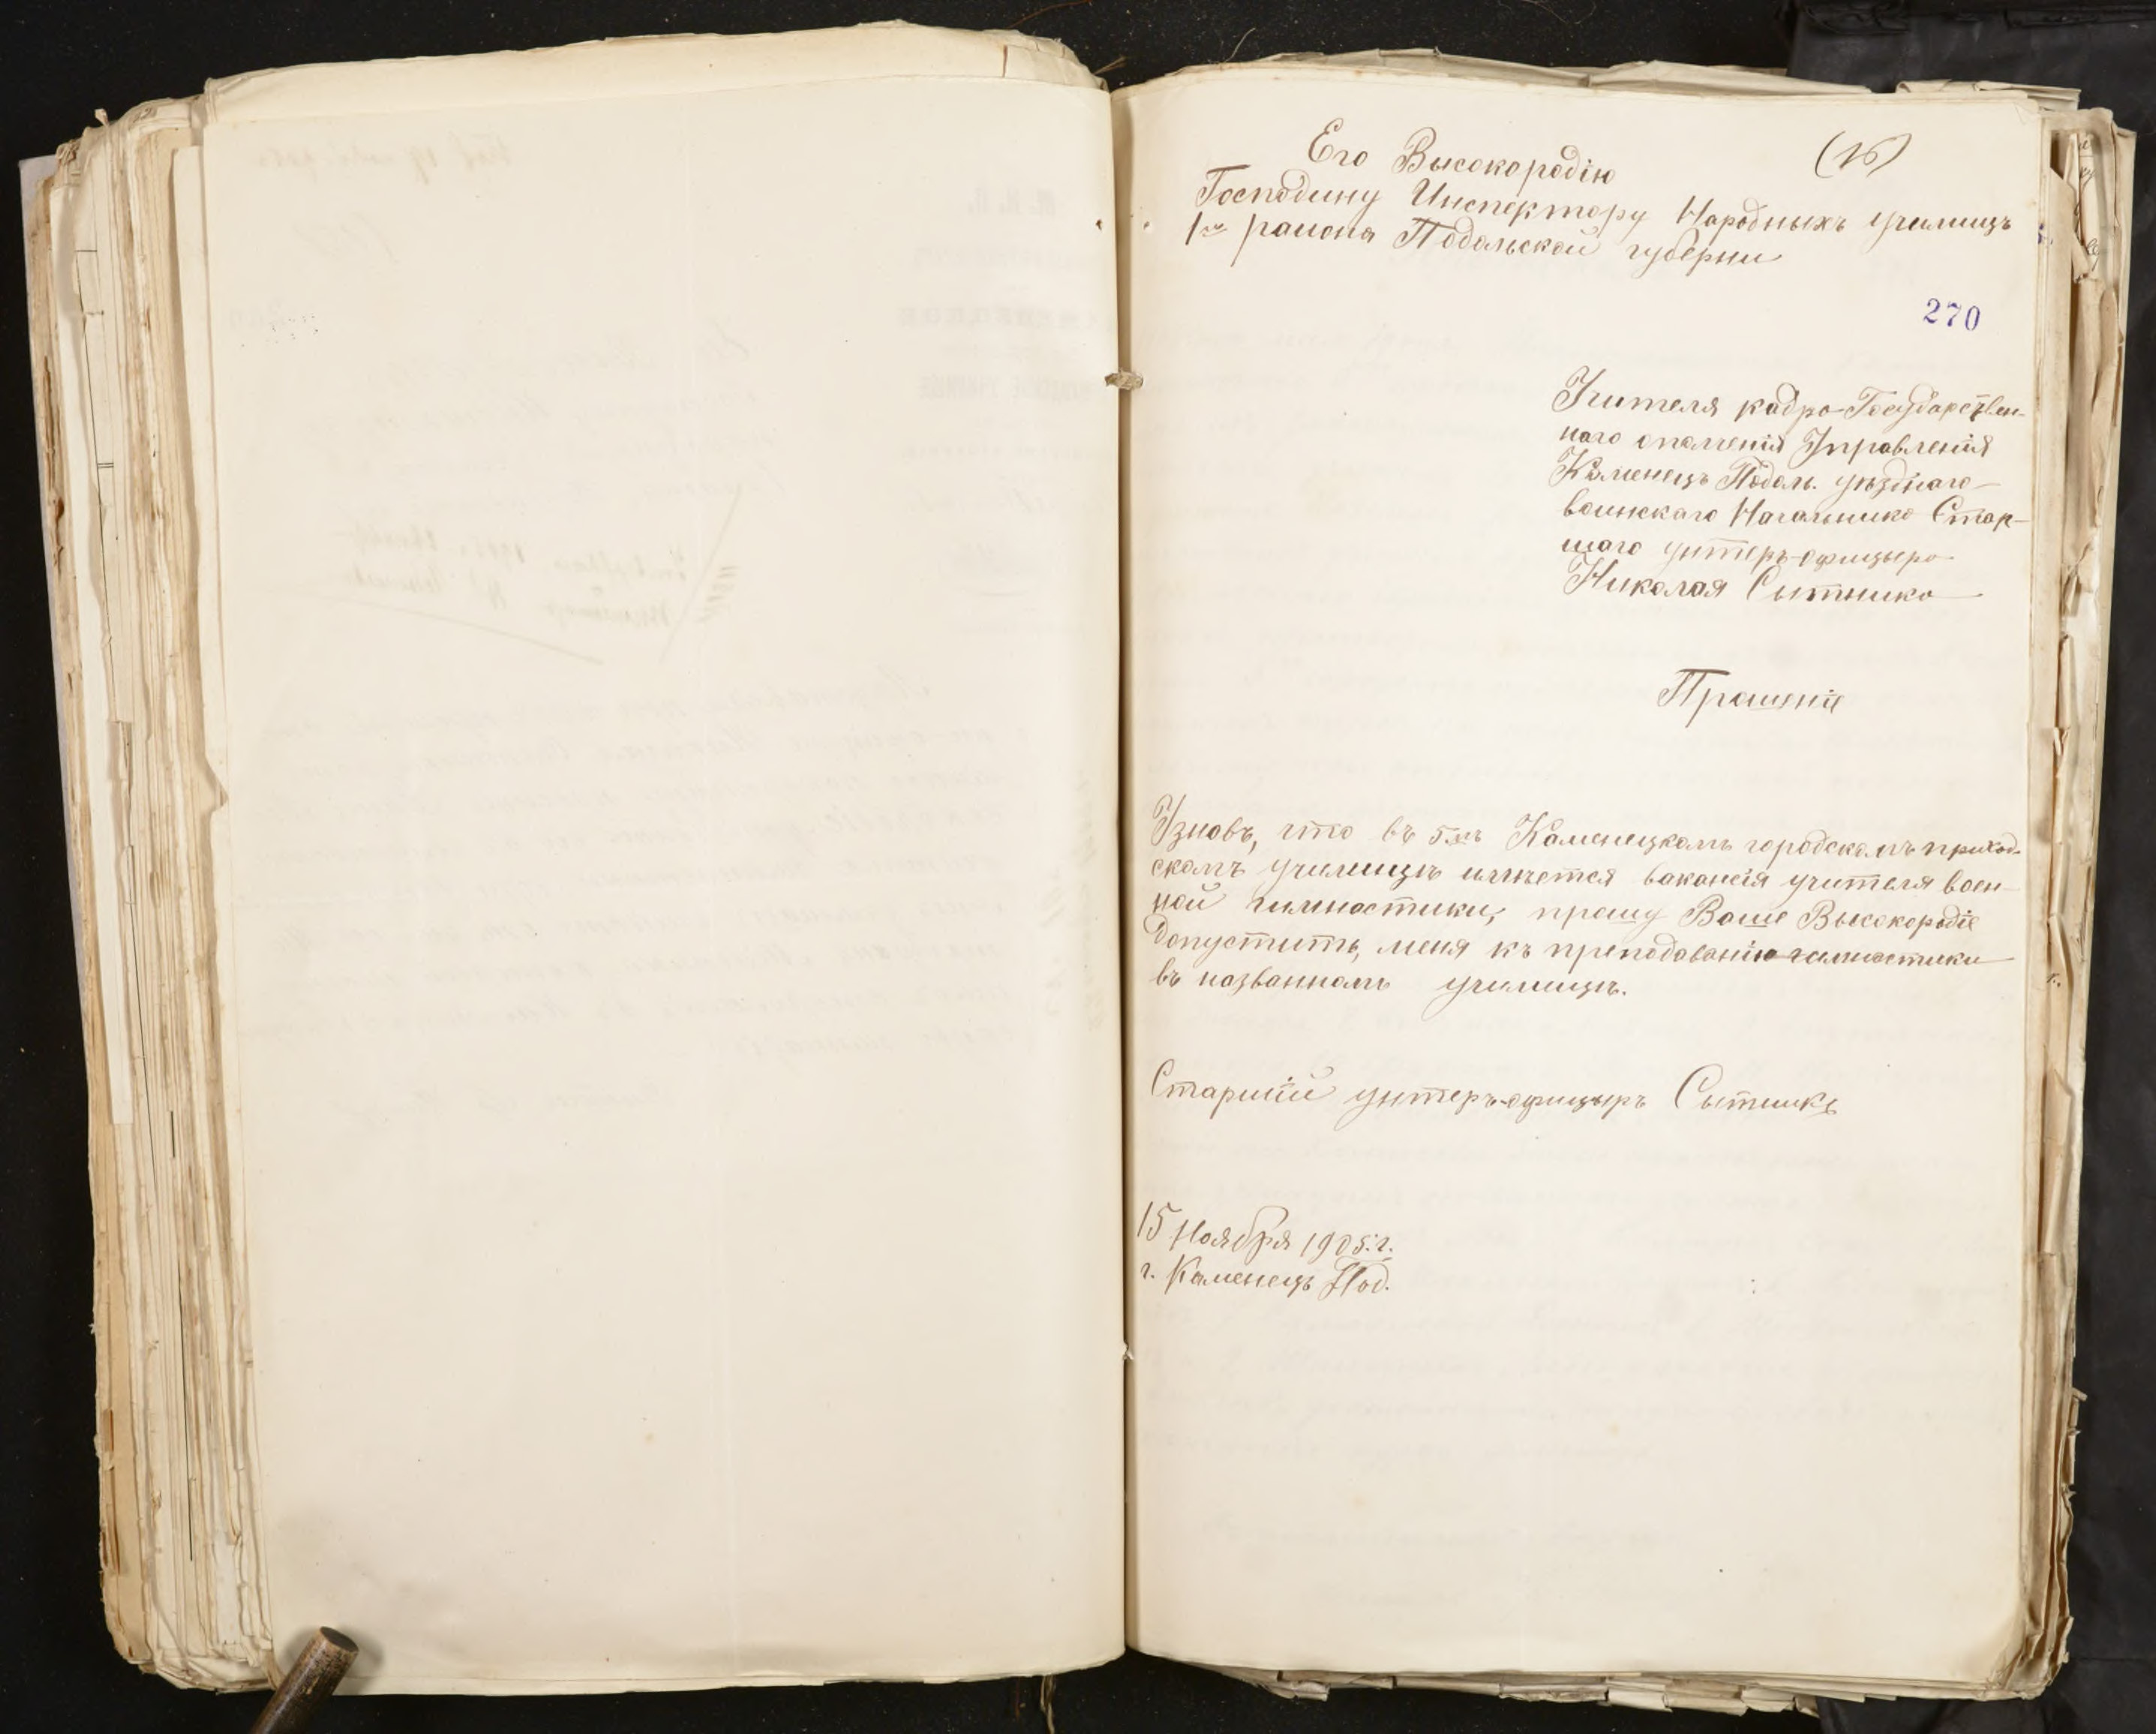 Его Высокородію
(16)
Господину Инспектору Народныхъ училищъ
1го района Подольской губерни
270
Учителя кадра Государствен-
наго ополченія Управленія
Каменецъ Подоль. уѣзднаго
воинскаго Начальника Стар-
шаго унтеръ-офицера
Николая Сытника
Прошеніе
Узновъ, что въ 5мъ Каменецкомъ городскомъ приход-
скомъ училищѣ имѣется вакансія учителя воен-
ной гимнастики, прошу Ваше Высокородіе
допустить, меня къ преподаванію гимнастики
въ названномъ училищѣ.
Старшій унтеръ-офицеръ Сытникъ
15 Ноября 1905 г.
г. Каменецъ Под.